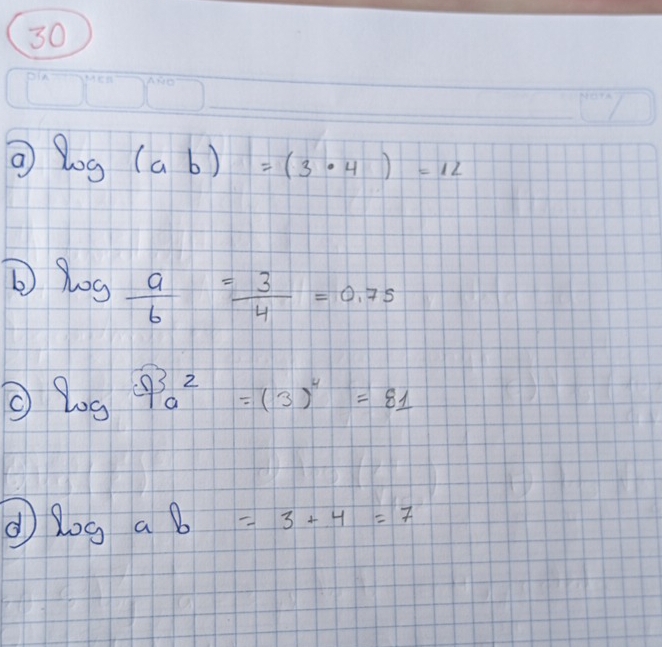 30
DÍA MES AÑO NOTA
a) log (a b) = (3 • 4) = 12
b) log a/b = 3/4 = 0.75
c) log a² = (3)⁴ = 81
d) log a b = 3 + 4 = 7